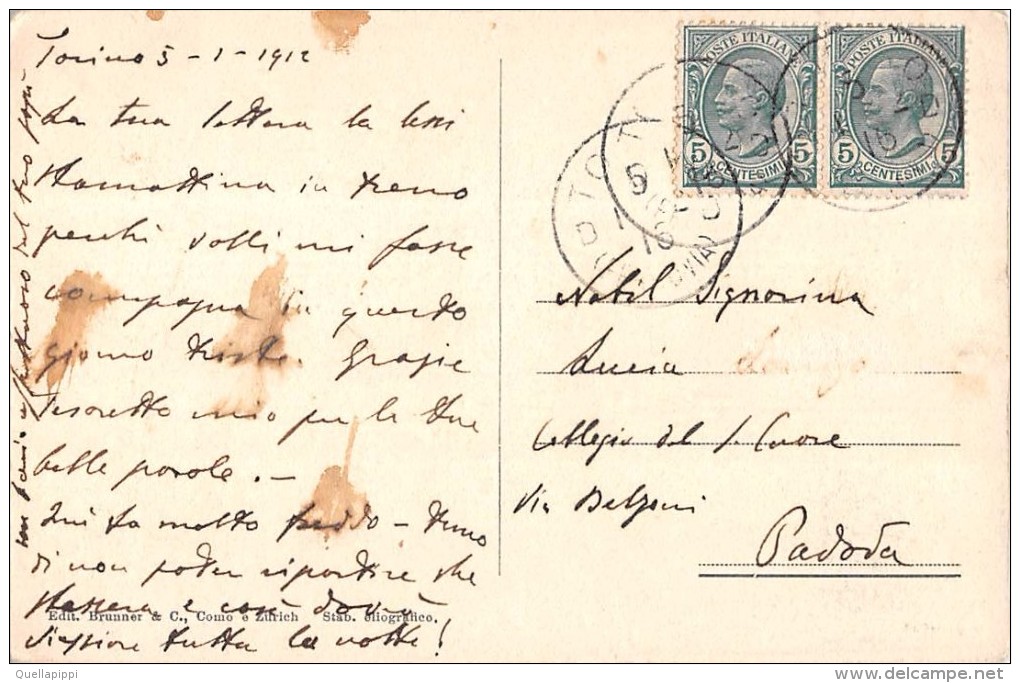 Torino 5-1-1912
La tua lettera la lessi
stamattina in treno
perchè volli mi fosse
compagna in questo
giorno triste. Grazie
tesoretto mio per le tue
belle parole. -
Qui fa molto freddo - temo
di non poter ripartire che
stassera e così dovrò
viaggiare tutta la notte!
un bacio affettuoso del tuo papà
Edit. Brunner & C., Como e Zürich Stab. eliografico.
POSTE ITALIANE
5 CENTESIMI 5
POSTE ITALIANE
5 CENTESIMI 5
Nobil Signorina
Lucia
Collegio del S. Cuore
Via Belzoni
Padova
Quellapippi
delcampe.net